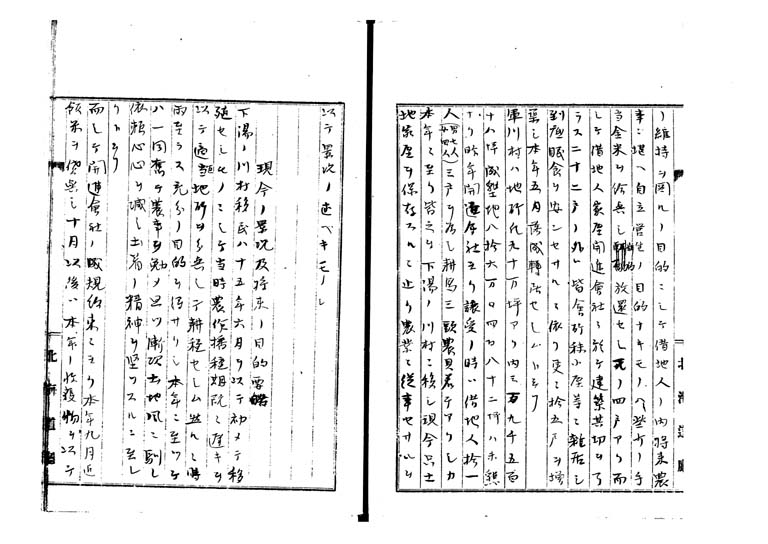 ノ維持ヲ図ルノ目的ニシテ借地人ノ内将来農
事ニ堪ヘ自立営生ノ目的ナキモノヘハ若干ノ手
当金米ヲ給与シ放還セシモノ四戸アリ而
シテ借地人家屋開進会社ニ於テ建築其功ヲ了
ラス二十二戸ノ外ハ皆舎所稀小屋等ニ雑居シ
到底眠食ヲ安ンセサルニ依リ更ニ拾五戸ヲ増
築シ本年五月落成転居セシムルニ
軍川村ハ地所凡九十万坪アリ内三百九千五百
十八坪成墾地八拾六万〇四百八十二坪ハ未懇
ナリ昨年開進会社ヨリ譲受ノ時ハ借地人拾一
人三戸ヲ為シ耕馬三頭農具若干アリシカ
本年ニ至リ皆之ヲ下湯ノ川村ニ移シ現今只土
地家屋ヲ保存スルニ止リ農業ニ従事セサルヲ
以テ景況ノ述ヘキモノナシ
現今ノ景況及将来ノ目的要略
下湯ノ川村移民ハ十五年六月ヲ以テ初メテ移
殖セシモノニシテ当時農作播種期既ニ遅キヲ
以テ適地所ヲ分与シテ耕種セシム然レモ時
雨至ラス充分ノ目的ヲ得サリシ本年ニ至ツテ
ハ一同奮テ農事ヲ勉メ且ツ漸次土地風ニ馴レ
依頼心ヲ減シ土着ノ精神ヲ堅フスルニ至レ

而シテ開進会社ノ成規約束ニヨリ本年九月迄
飯米ヲ貸与シ十月以後ハ本年ノ収穫物ヲ以テ
北海道庁